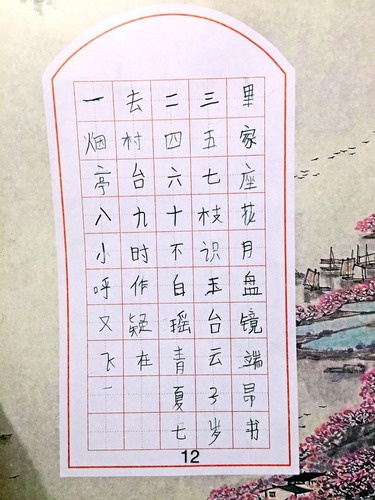 一去二三里
烟村四五家
亭台六七座
八九十枝花
小时不识月
呼作白玉盘
又疑瑶台镜
飞在青云端
夏子昂
七岁书
12